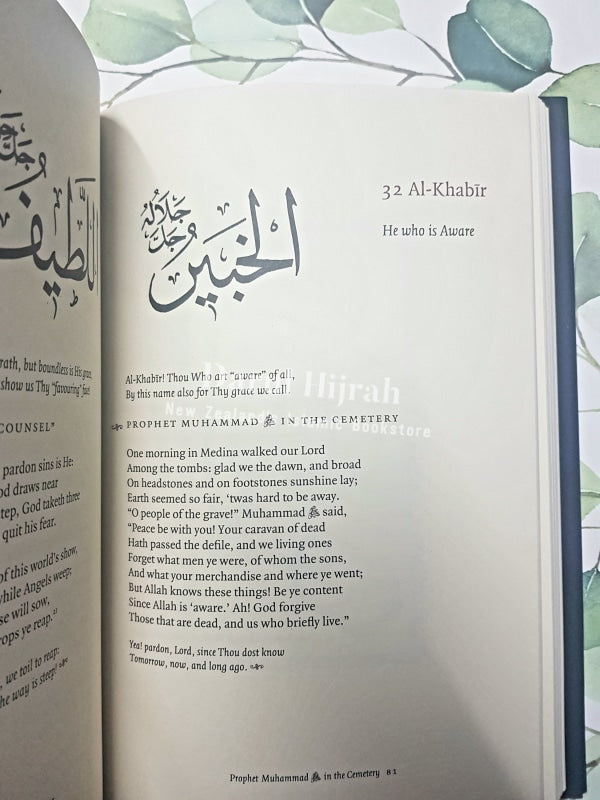 rath, but boundless is His grace,
show us Thy "favouring" face!
COUNSEL"
pardon sins is He:
od draws near
tep, God taketh three
quit his fear.
of this world's show,
while Angels weep;
se will sow,
rops ye reap."
we toil to reap:
he way is steep!
اللَّطِيف
جَلَّ
32 Al-Khabīr
He who is Aware
الخَبِير جَلَّ جَلَالُهُ
Al-Khabīr! Thou Who art "aware" of all,
By this name also for Thy grace we call.
Hijrah
New Zealand's Islamic Bookstore
PROPHET MUHAMMAD ﷺ IN THE CEMETERY
One morning in Medina walked our Lord
Among the tombs: glad we the dawn, and broad
On headstones and on footstones sunshine lay;
Earth seemed so fair, 'twas hard to be away.
"O people of the grave!" Muhammad ﷺ said,
"Peace be with you! Your caravan of dead
Hath passed the defile, and we living ones
Forget what men ye were, of whom the sons,
And what your merchandise and where ye went;
But Allah knows these things! Be ye content
Since Allah is 'aware.' Ah! God forgive
Those that are dead, and us who briefly live."
Yea! pardon, Lord, since Thou dost know
Tomorrow, now, and long ago.
Prophet Muhammad ﷺ in the Cemetery 81